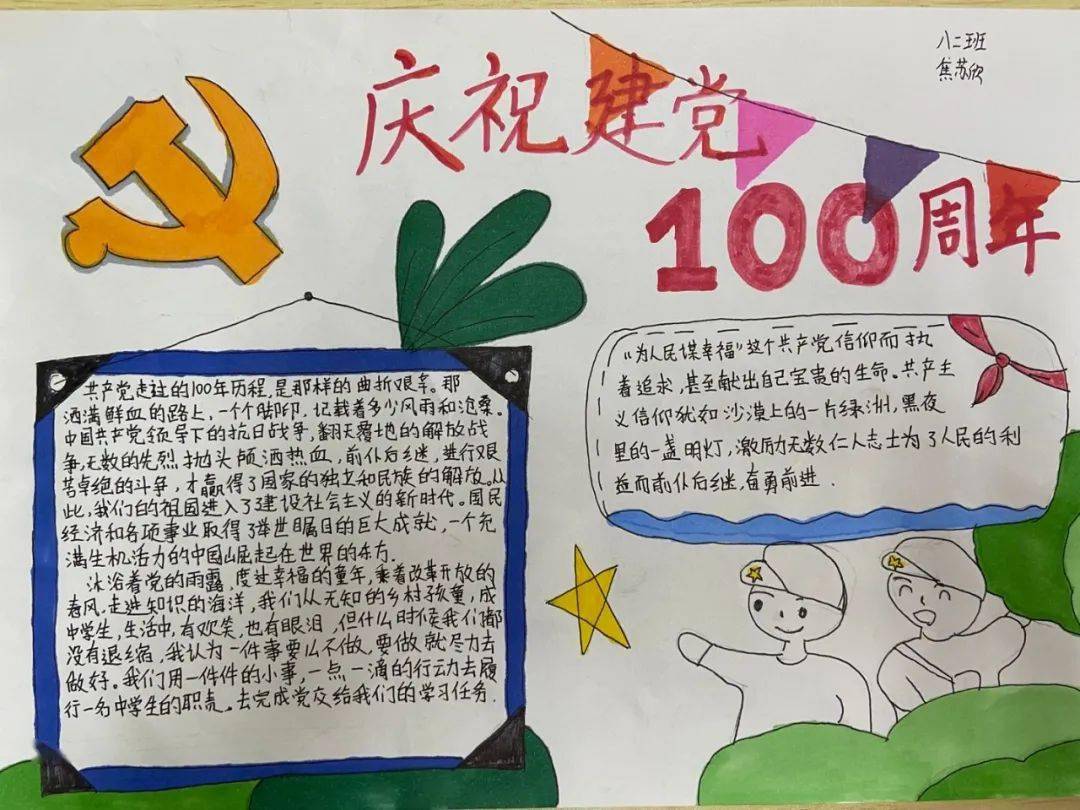 八二班
焦苏欣
庆祝建党
100周年
共产党走过的100年历程,是那样的曲折艰辛。那
洒满鲜血的路上,一个个脚印,记载着多少风雨和沧桑。
中国共产党领导下的抗日战争,翻天覆地的解放战
争,无数的先烈抛头颅洒热血,前仆后继,进行艰
苦卓绝的斗争,才赢得了国家的独立和民族的解放。从
此,我们的祖国进入了建设社会主义的新时代。国民
经济和各项事业取得了举世瞩目的巨大成就,一个充
满生机活力的中国崛起在世界的东方.
沐浴着党的雨露,度过幸福的童年,乘着改革开放的
春风.走进知识的海洋,我们从无知的乡村孩童,成
中学生,生活中,有欢笑,也有眼泪,但什么时候我们都
没有退缩,我认为一件事要么不做,要做就尽力去
做好。我们用一件件的小事,一点一滴的行动去履
行一名中学生的职责。去完成党交给我们的学习任务.
"为人民谋幸福"这个共产党信仰而执
着追求,甚至献出自己宝贵的生命。共产主
义信仰犹如沙漠上的一片绿洲,黑夜
里的一盏明灯,激励无数仁人志士为了人民的利
益而前仆后继,奋勇前进.